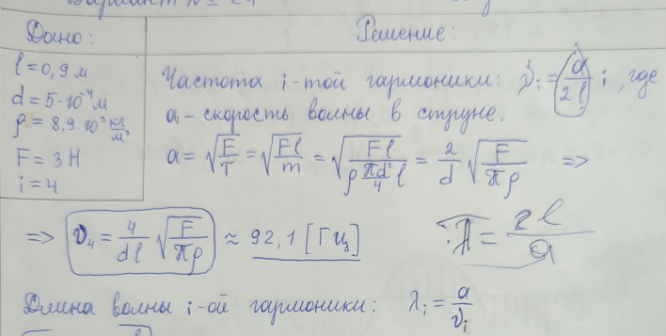 Вариант № 24
Дано:
Решение:
l = 0,9 м
d = 5·10⁻⁴ м
ρ = 8,9·10³ кг/м³
F = 3 Н
i = 4
Частота i-той гармоники: ν_i = a/(2l) i, где
a - скорость волны в струне.
a = √(F/T) = √(Fl/m) = √(Fl/(ρ (πd²/4) l)) = 2/d √(F/(πρ)) =>
=> ν₄ = 4/(dl) √(F/(πρ)) ≈ 92,1 [Гц]
= 2l/a
Длина волны i-ой гармоники: λ_i = a/ν_i